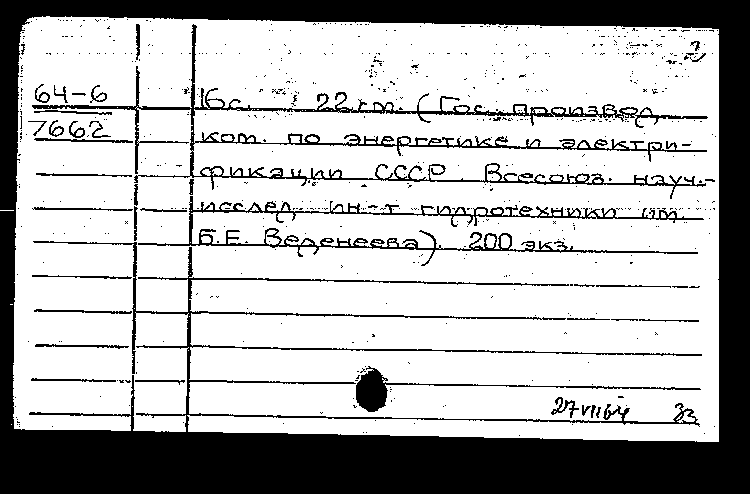 2
64-6
7662
16 с. 22 см. (Гос. производ.
ком. по энергетике и электри-
фикации СССР. Всесоюз. науч.-
исслед. ин-т гидротехники им.
Б.Е. Веденеева). 200 экз.
27 VII 64